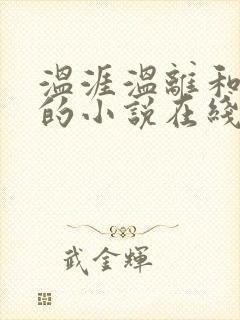 温涯温離和
的小说在綫
武金輝